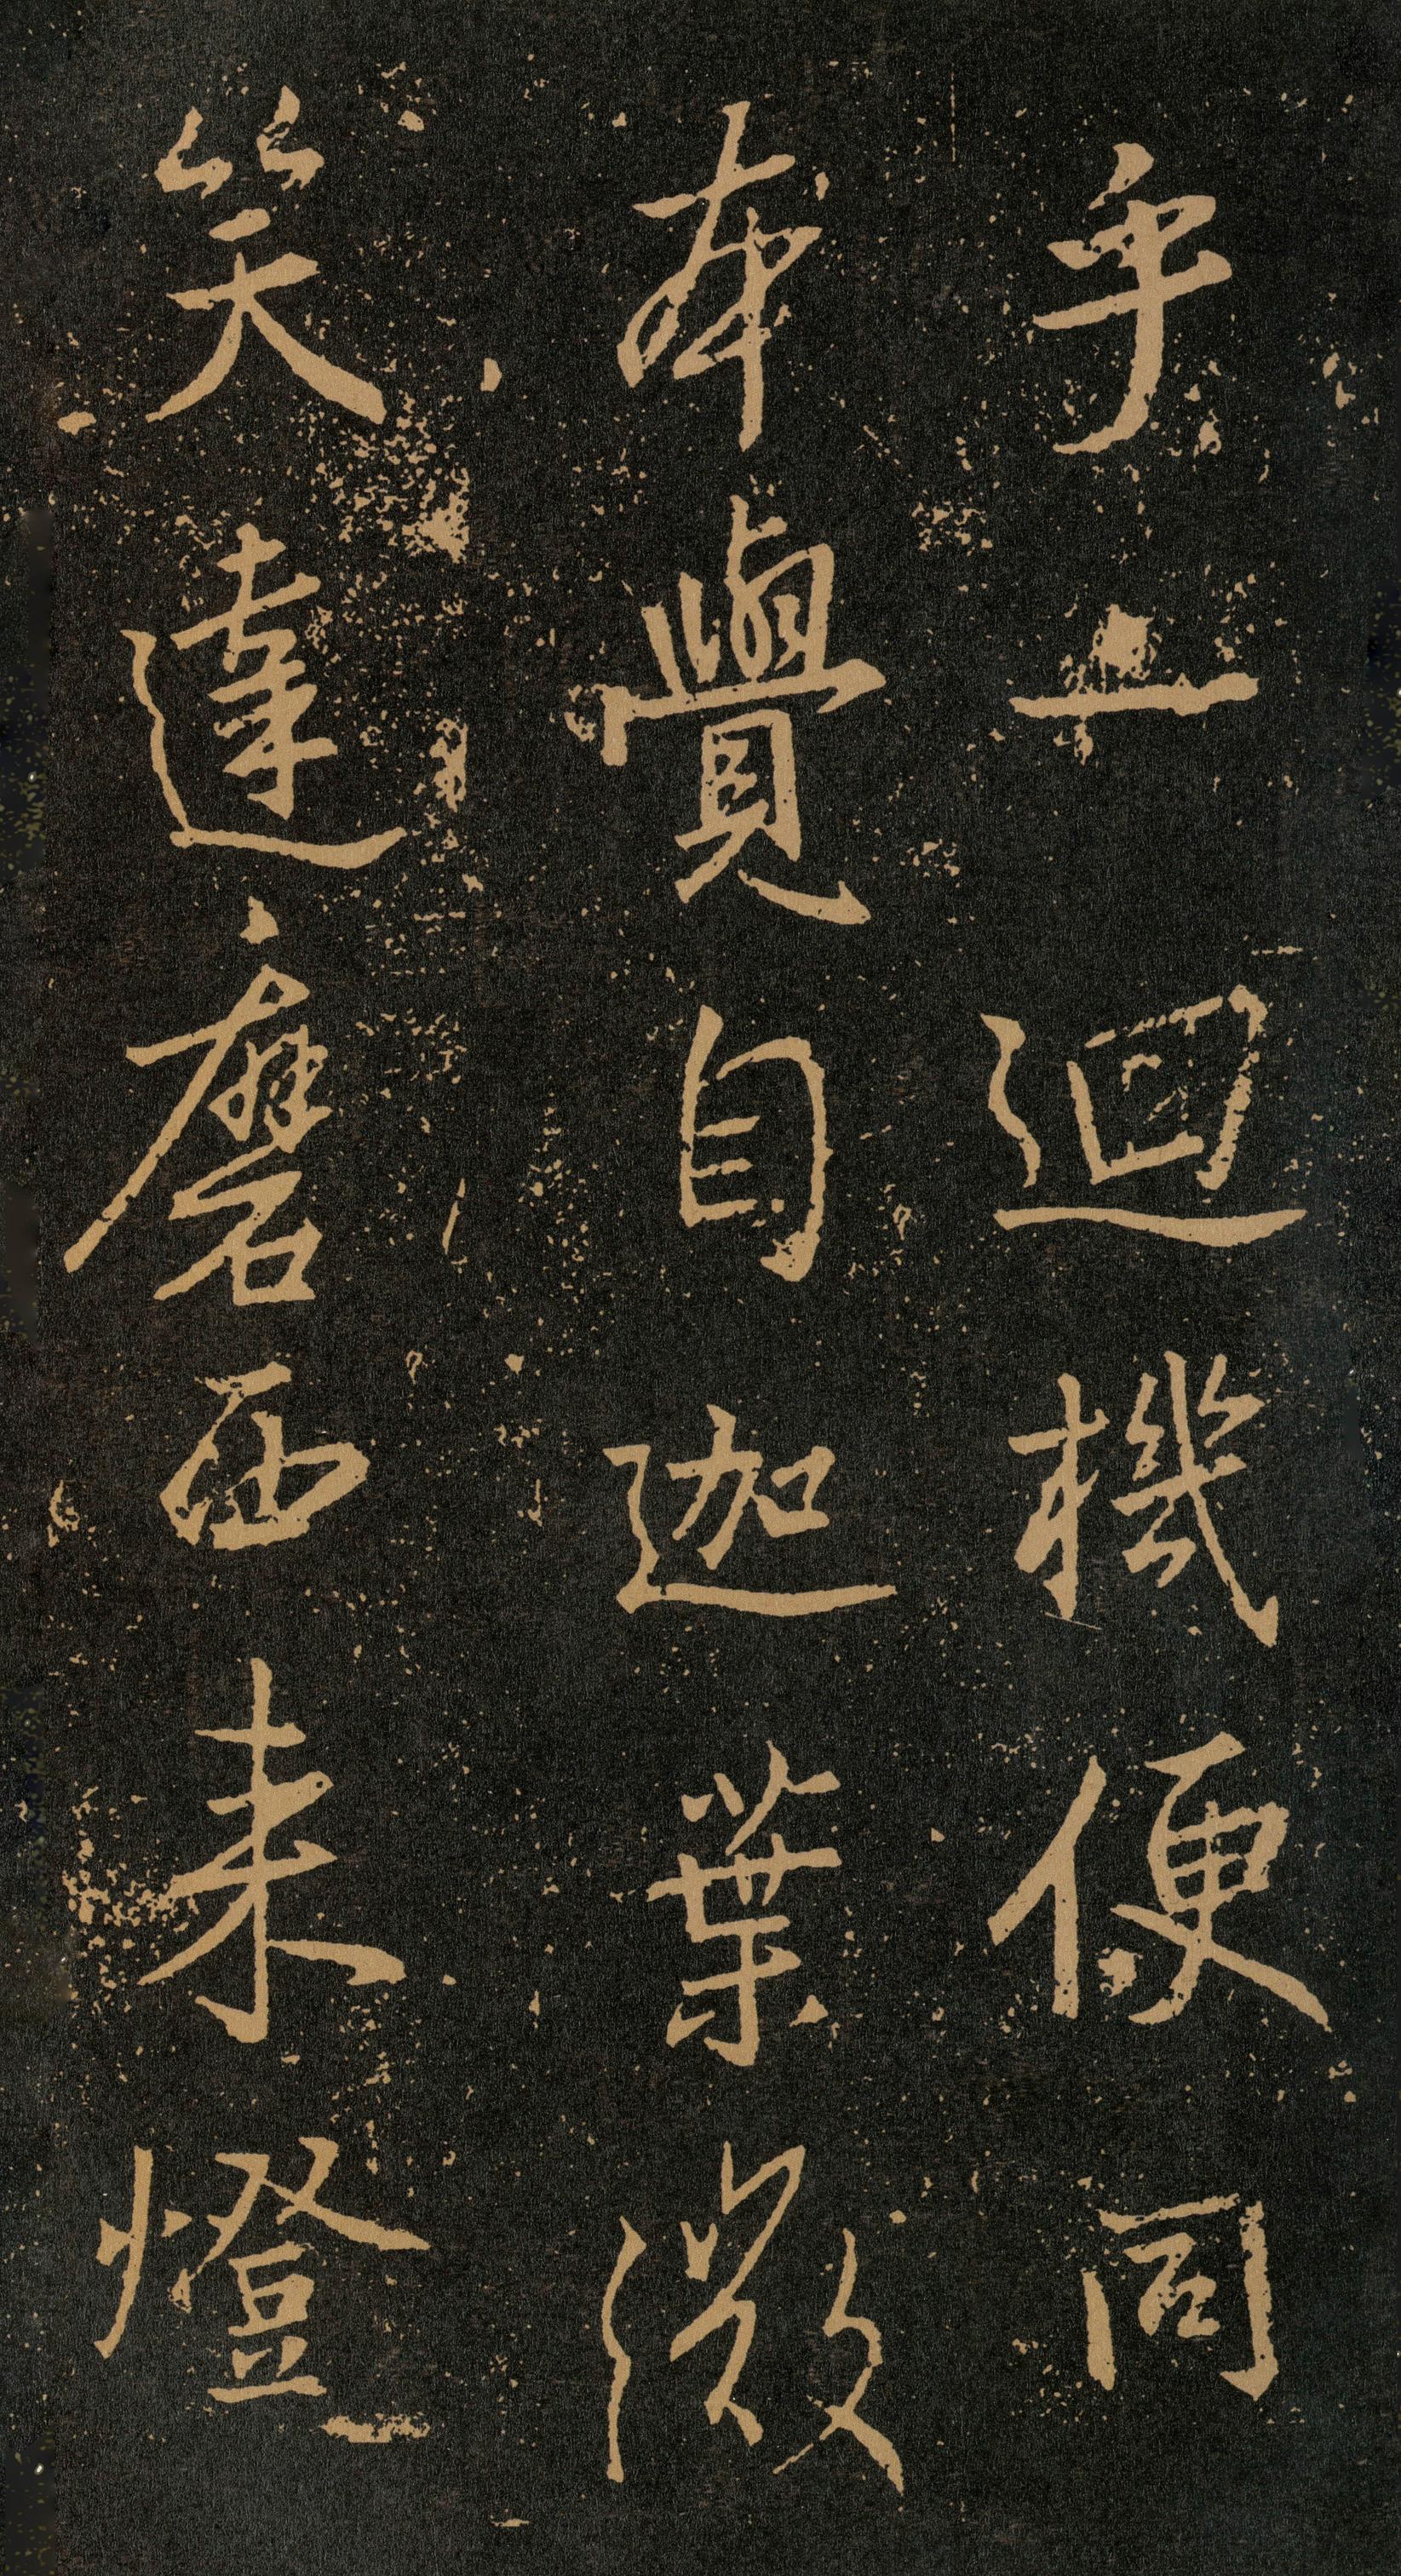 乎一迴機便同
本覺自迦葉微
笑達磨西来燈